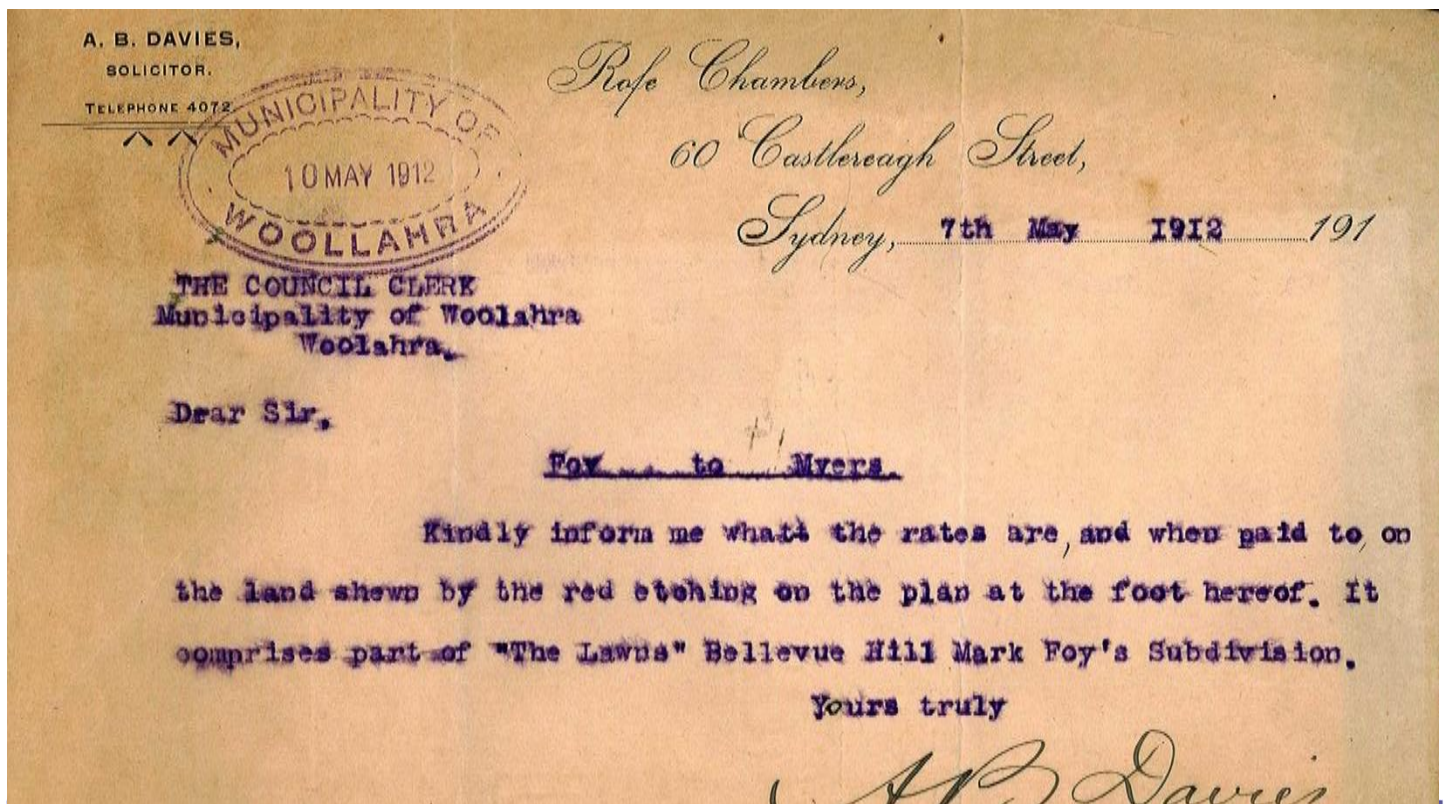 A. B. DAVIES,
SOLICITOR.
TELEPHONE 4072
MUNICIPALITY OF
10 MAY 1912
WOOLLAHRA
Rofe Chambers,
60 Castlereagh Street,
Sydney, 7th May 1912 191
THE COUNCIL CLERK
Municipality of Woolahra
Woolahra.
Dear Sir,
Foy to Myers.
Kindly inform me whatt the rates are, and when paid to, on
the land shewn by the red etching on the plan at the foot hereof. It
comprises part of "The Lawns" Bellevue Hill Mark Foy's Subdivision.
Yours truly
A B Davies